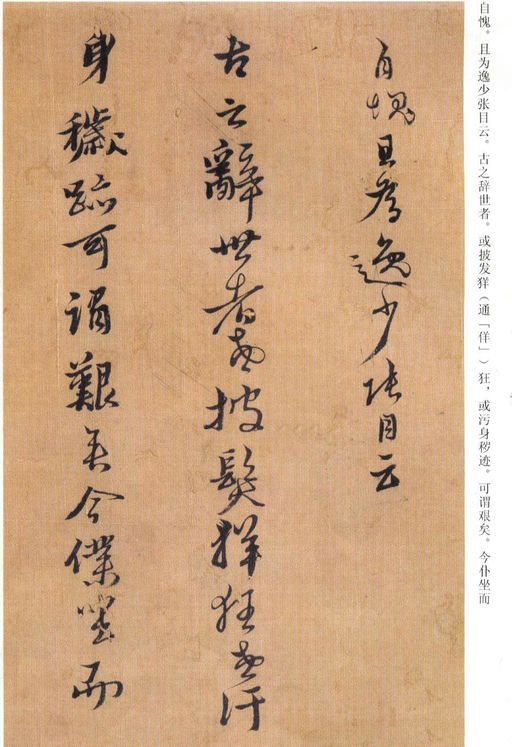 自愧。且为逸少张目云。古之辞世者。或披发徉（通「佯」）狂，或污身秽迹。可谓艰矣。今仆坐而
自愧且為逸少張目云
古之辭世者或披髮徉狂或汙
身穢跡可謂艱矣今僕坐而